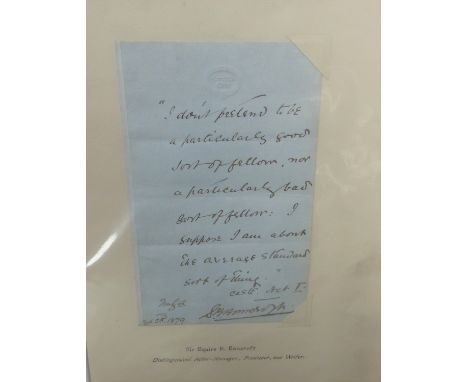 "I don't pretend to be
a particularly good
sort of fellow, nor
a particularly bad
sort of fellow: I
suppose I am about
the average standard
sort of thing."
Act I.
1879
Sir Squire B. Bancroft
Distinguished Actor-Manager, Producer, and Writer.